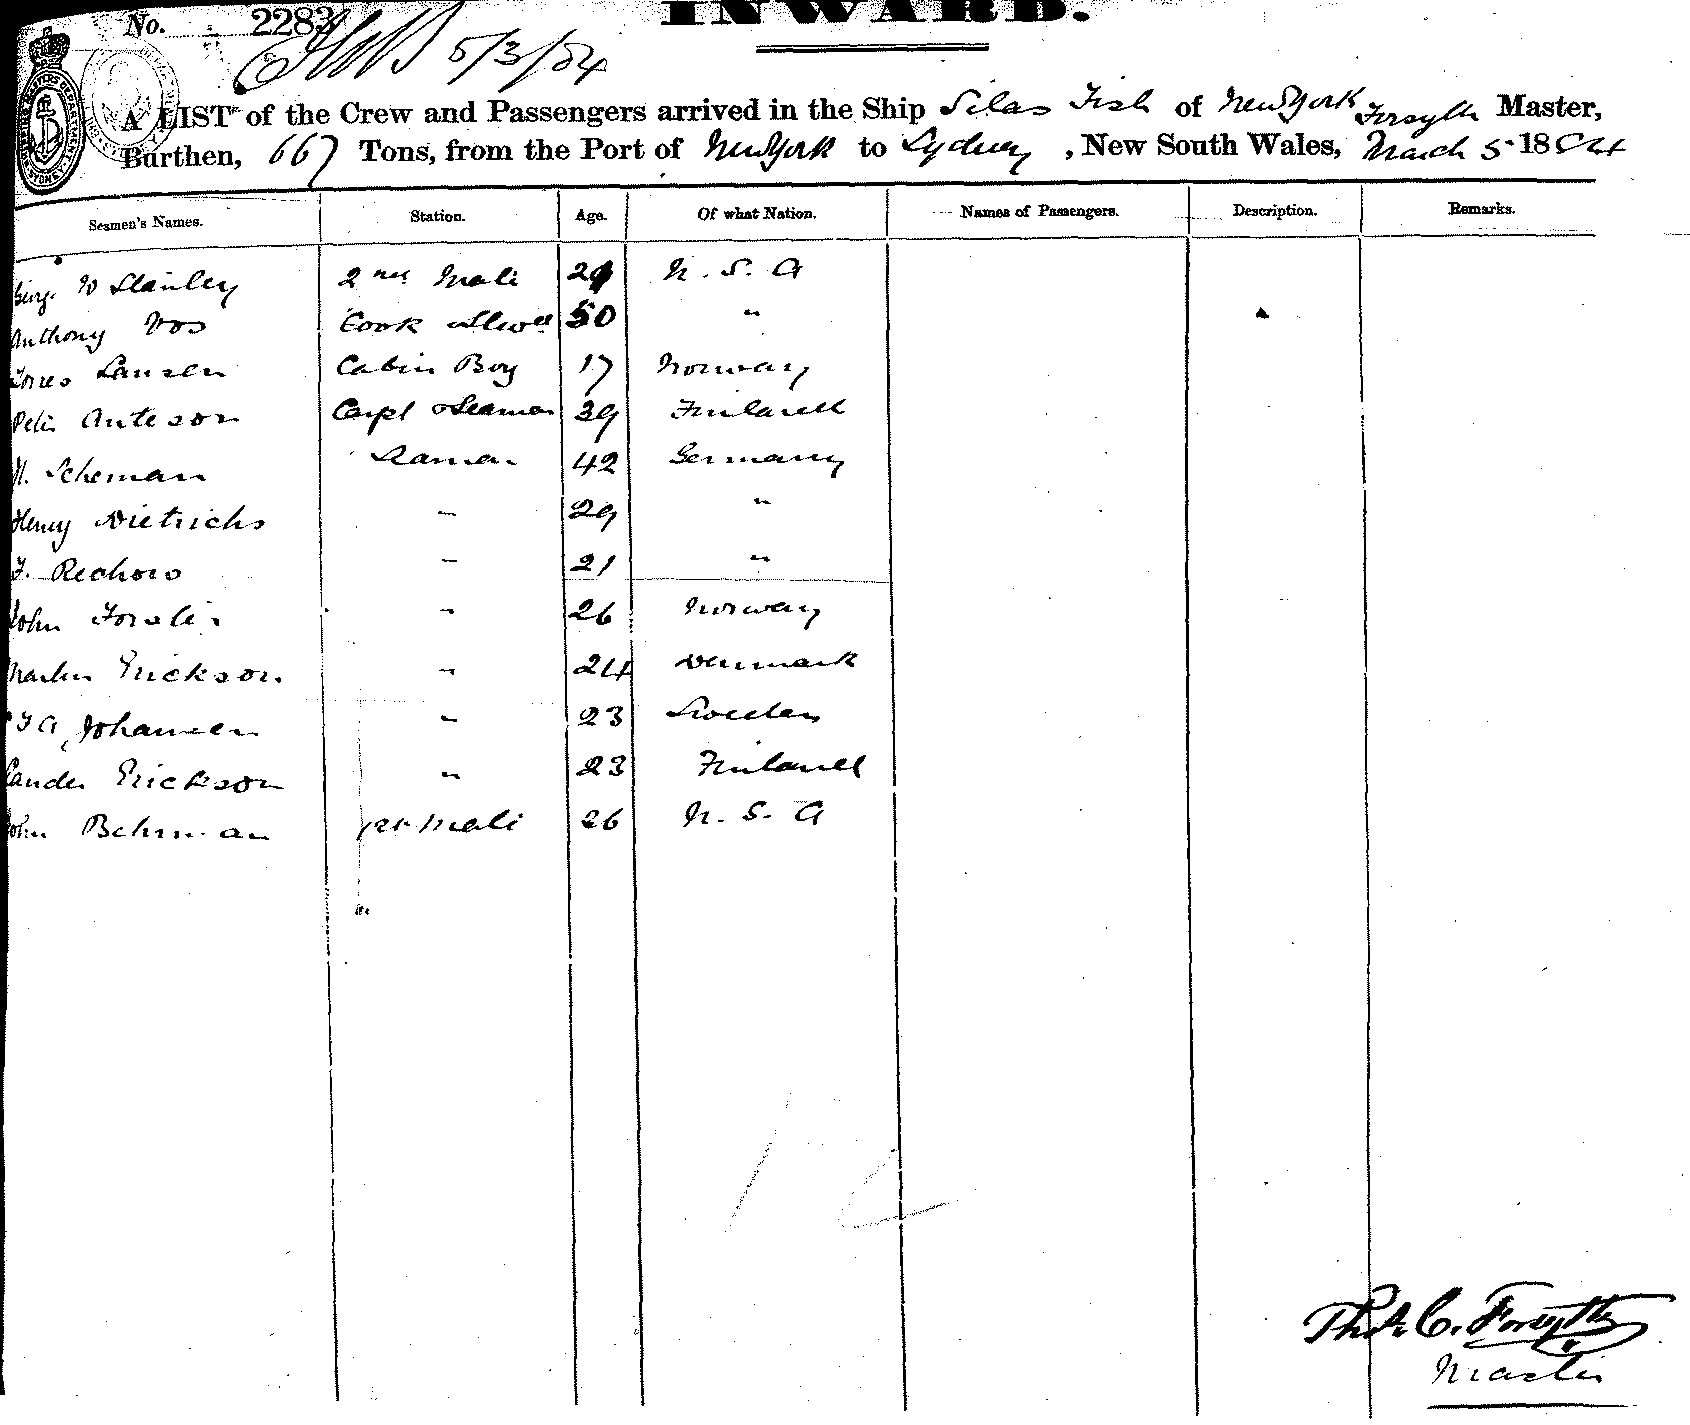 INWARD.
No. 2283
5/3/84
A LIST of the Crew and Passengers arrived in the Ship Silas Fish of New York Forsyth Master,
Burthen, 667 Tons, from the Port of New York to Sydney, New South Wales, March 5 1884
Seamen's Names. Station. Age. Of what Nation. Names of Passengers. Description. Remarks.
W Stanley 2nd Mate 29 U. S. A
Anthony Vos Cook & Stwd 50 "
Lausen Cabin Boy 17 Norway
Anteson Carpt & Seaman 39 Finland
Scheman Seaman 42 Germany
Henry Dietrichs " 29 "
F. Rechow " 21 "
John " 26 Norway
Martin Erickson " 24 Denmark
Johansen " 23 Sweden
Erickson " 23 Finland
John Behrman 1st Mate 26 U. S. A
C. Forsyth
Master